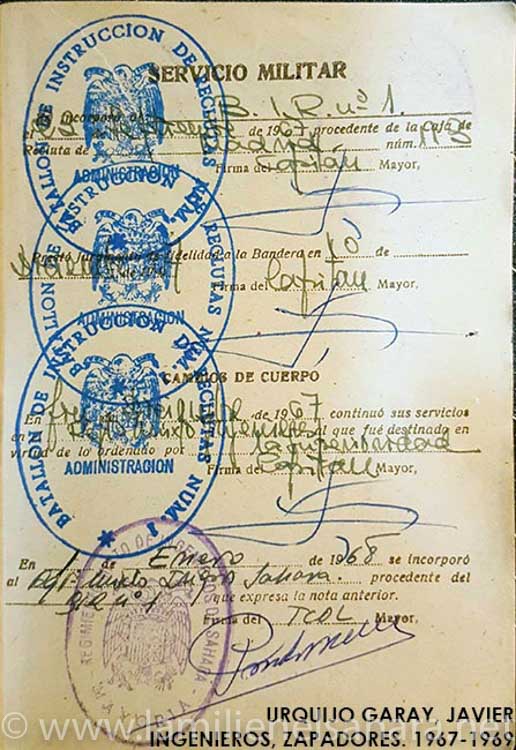 SERVICIO MILITAR
Se incorporó al B. I. R. nº 1.
de 1967 procedente de la caja de
Recluta de Madrid núm. 113
Firma del Capitán Mayor,
Prestó juramento de fidelidad a la Bandera en 10 de
Firma del Capitán Mayor,
CAMBIOS DE CUERPO
En de 1967 continuó sus servicios
en Mixto al que fué destinado en
virtud de lo ordenado por la superioridad
Firma del Capitán Mayor,
En 1 de Enero de 1968 se incorporó
al Mixto Sahara procedente del
BIR nº 1 que expresa la nota anterior.
Firma del TCOL Mayor,
BATALLON DE INSTRUCCION DE RECLUTAS NUM. 1
ADMINISTRACION
ADMINISTRACION
BATALLON DE INSTRUCCION DE RECLUTAS NUM. 1
ADMINISTRACION
© www.lamilienelsahara.net
URQUIJO GARAY, JAVIER
INGENIEROS, ZAPADORES. 1967-1969